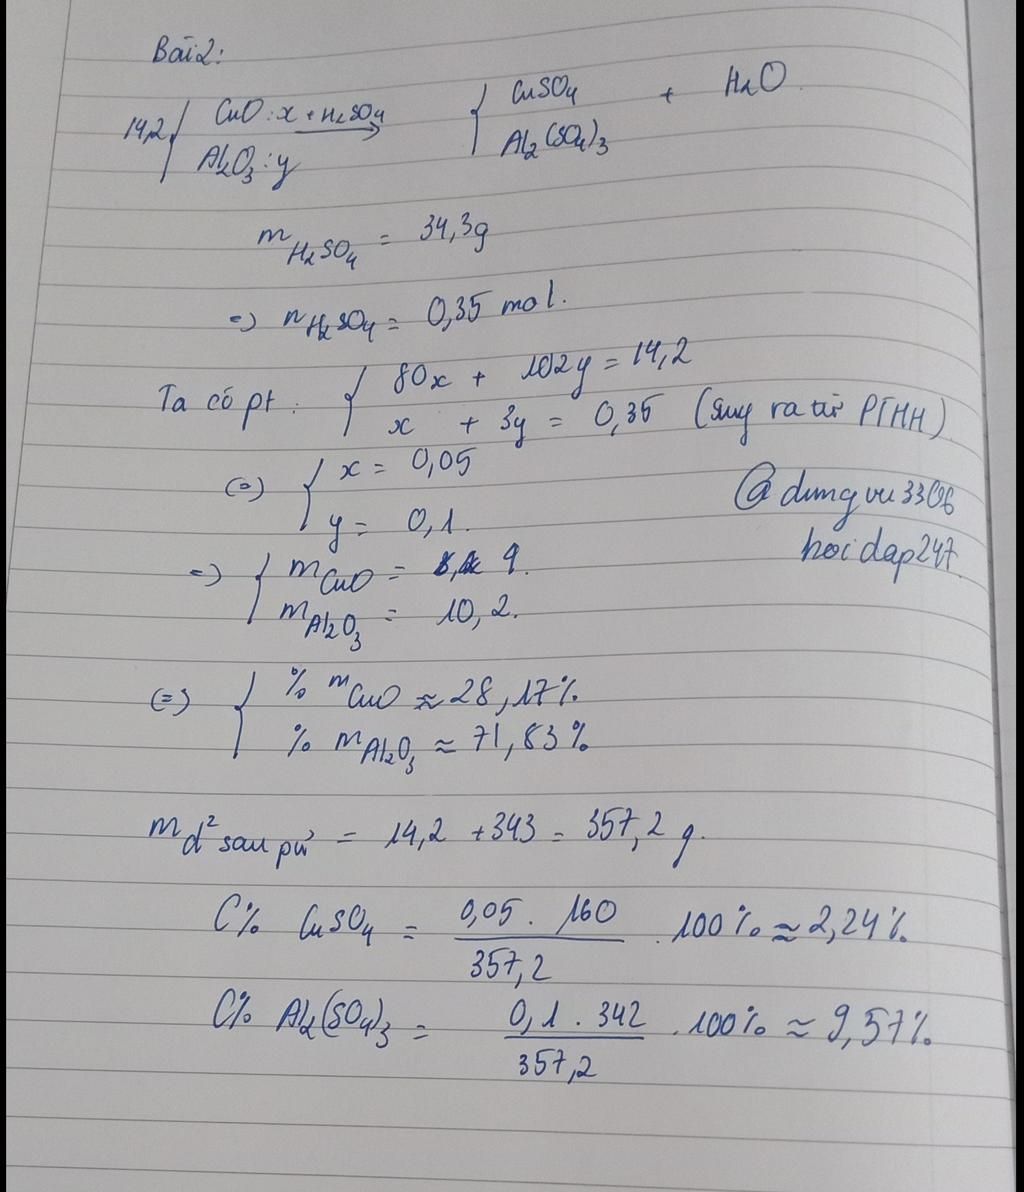 Bài 2:
14,2 { CuO : x + H₂SO₄ → { CuSO₄ + H₂O
Al₂O₃ : y Al₂(SO₄)₃
m H₂SO₄ = 34,3g
=> n H₂SO₄ = 0,35 mol.
Ta có pt : { 80x + 102y = 14,2
x + 3y = 0,35 (suy ra từ PTHH)
(=) { x = 0,05
y = 0,1.
@dungvu3306
hoidap247
=> { m CuO = 4.
m Al₂O₃ = 10,2.
(=) { % m CuO ≈ 28,17%
% m Al₂O₃ ≈ 71,83%
m d² sau pứ = 14,2 + 343 = 357,2 g.
C% CuSO₄ = 0,05 . 160 / 357,2 . 100% ≈ 2,24%.
C% Al₂(SO₄)₃ = 0,1 . 342 / 357,2 . 100% ≈ 9,57%.